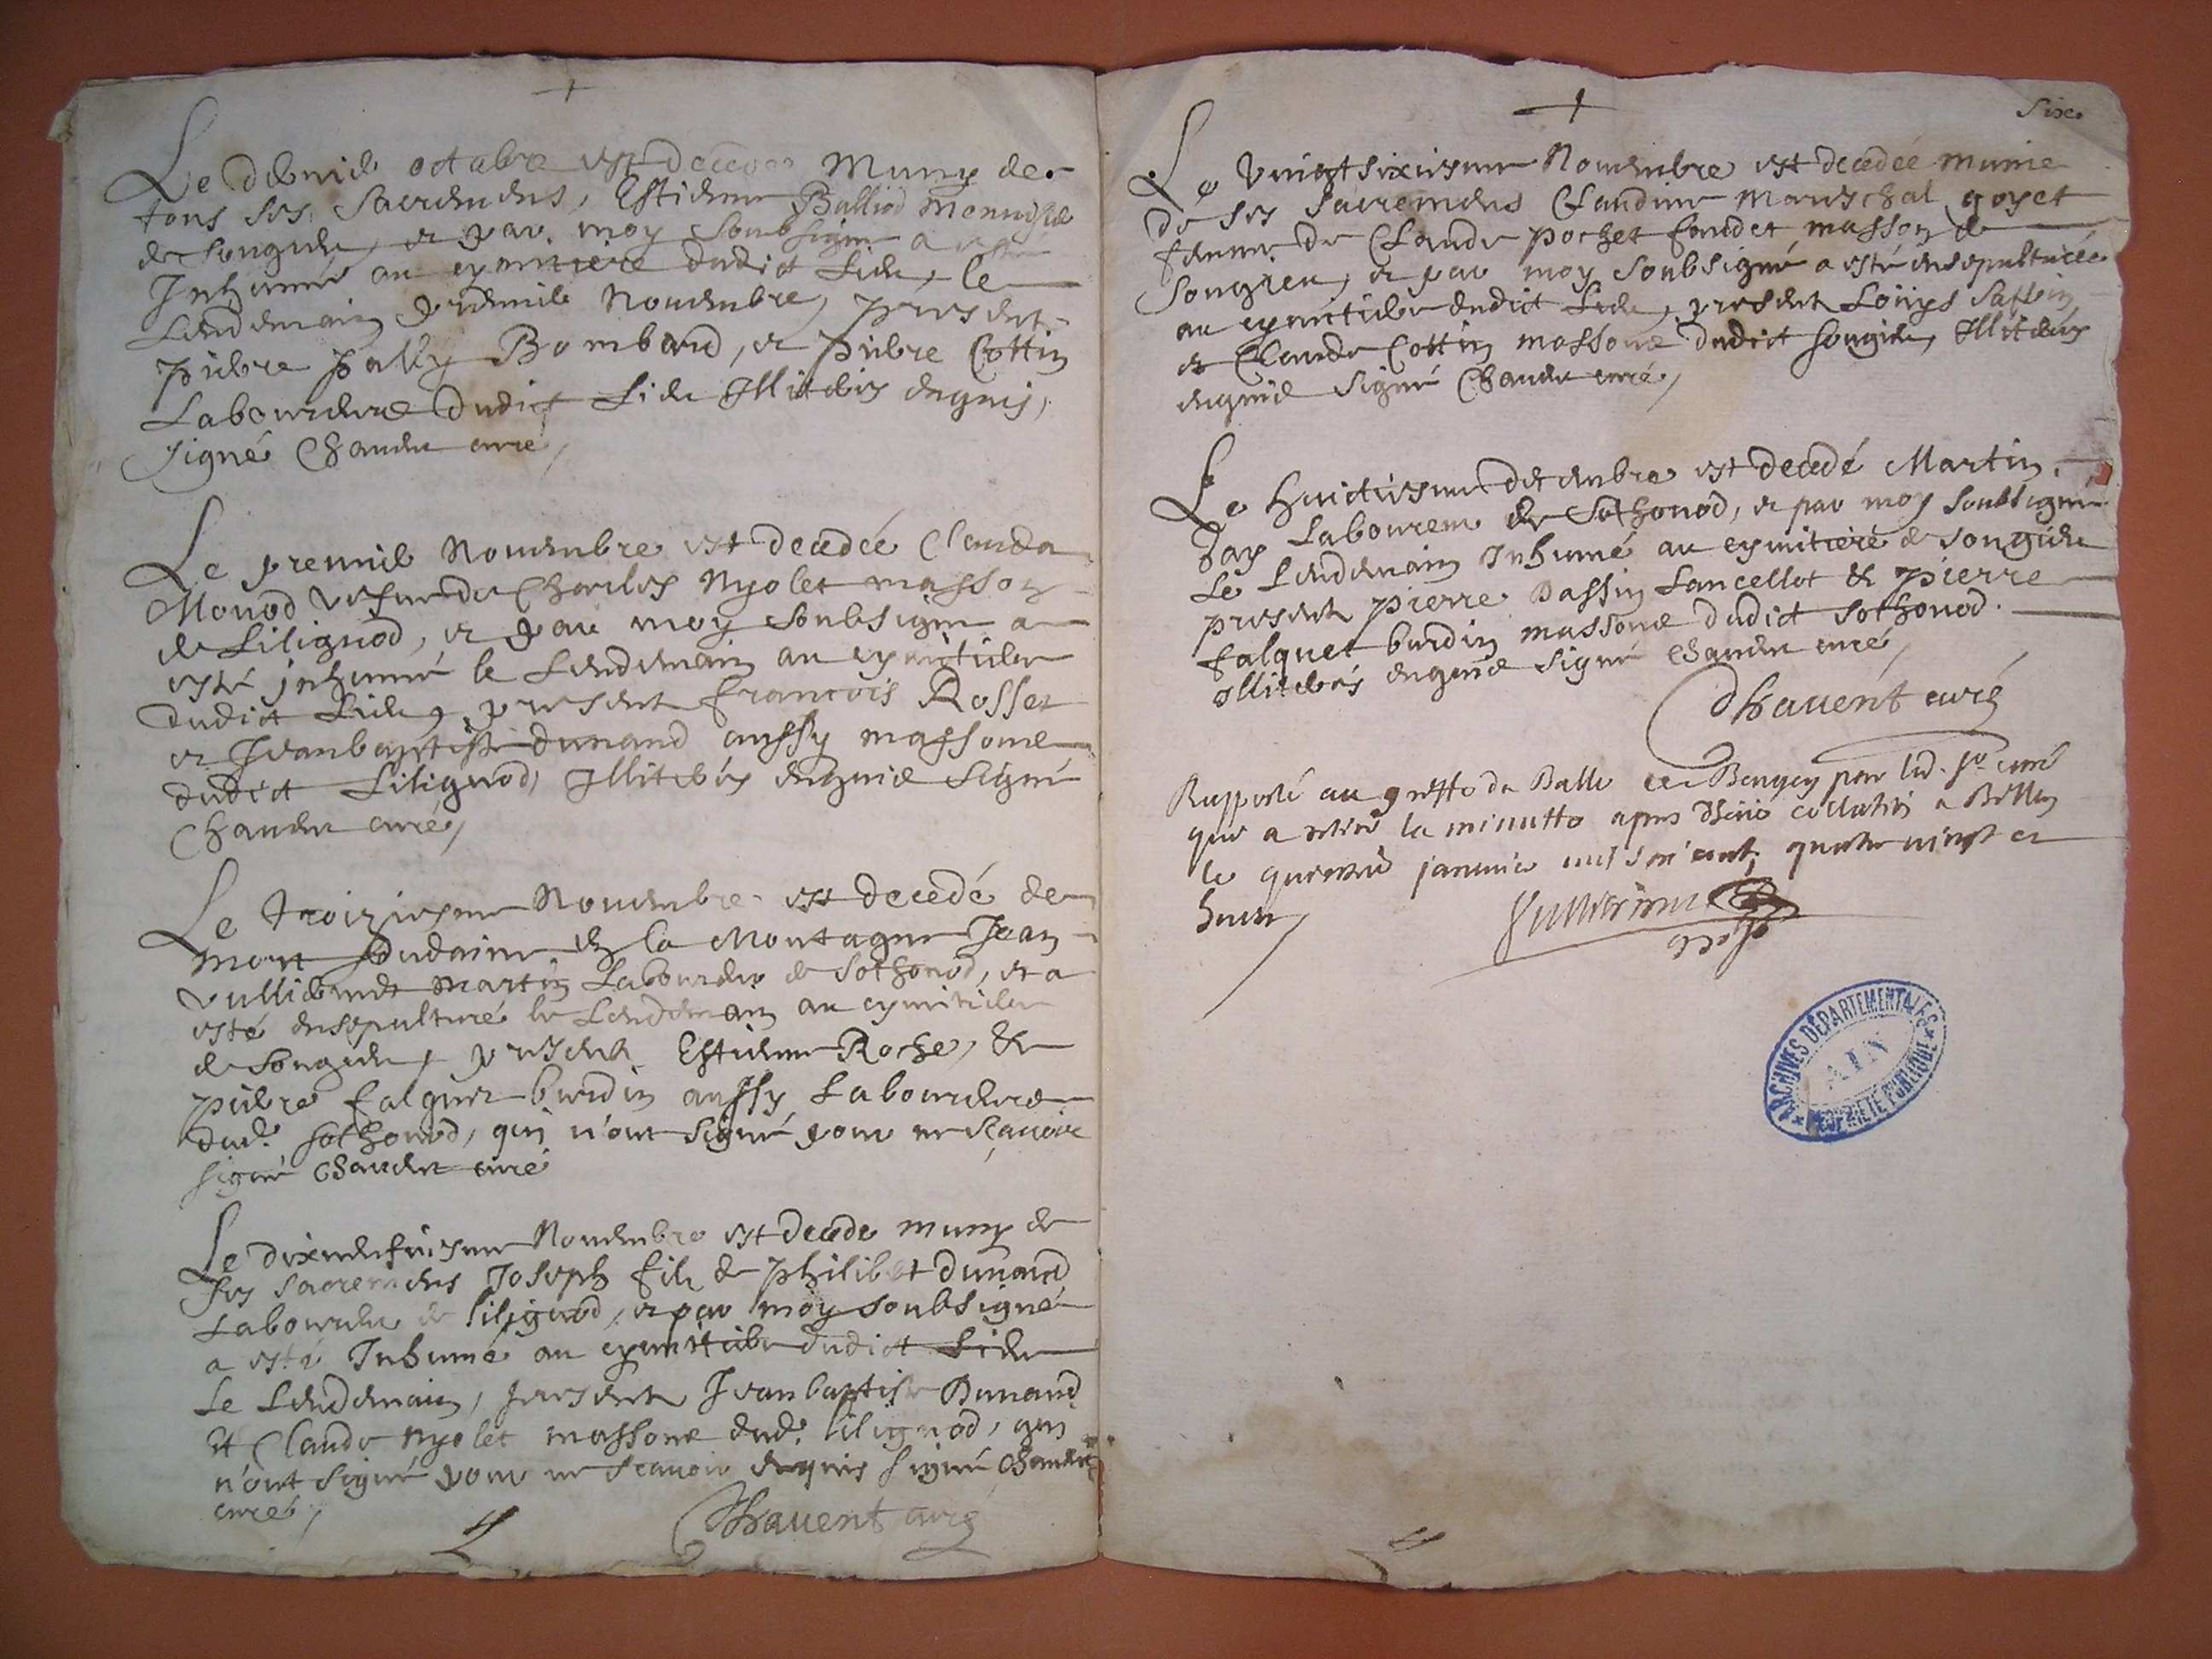 Le dernier octobre est decedé Muny de
tous ses Sacremens, Estienne Balliod Menusier
de Songieu, et par moy Soubsigné a esté
Inhumé au cymitiere dudict Lieu, le
Lendemain premier Novembre, present
Pierre Bombard, et Pierre Cottin
Laboureurs dudict Lieu Illiterés enquis,
signé Chavent curé,
Le premier Novembre est decedée Clauda
Monod vesve de Charles Nyolet masson
de Lilignod, et par moy Soubsigné a
esté inhumé le Lendemain au cymitiere
dudict Lieu, present francois Rosset
et Jeanbaptiste dunand aussy massons
dudict Lilignod, Illiterés enquis Signé
Chavent curé,
Le troiziesme Novembre est decedé de
mort Sudaine en la Montagne Jean
vulliermet Martin Laboureur de Sothonod, et a
esté ensepulturé le Lendemain au cymitiere
de Songieu, present Estienne Roche, et
pierre falquet burdin aussy Laboureurs
dud. Sothonod, qui n'ont Signé pour ne Scavoir
signé Chavent curé
Le dixneufviesme Novembre est decedé muny de
ses Sacremens Joseph fils de philibert dunand
Laboureur de lilignod, et par moy soubsigné
a esté Inhumé au cymitiere dudict Lieu
Le Lendemain, present Jeanbaptiste Dunand
et Claude Nyolet massons dud. lilignod, qui
n'ont signé pour ne scavoir enquis signé Chavent
curé,
Chavent curé
Six.
Le vingtsixiesme Novembre est decedée munie
de ses Sacremens Claudine Mareschal goyet
femme de Claude pochet faudet masson de
Songieu, et par moy soubsigné a esté ensepulturée
au cymitiere dudict Lieu, present Loüys Saffin
et Claude Cottin massons dudict Songieu, Illiterés
enquis signé Chavent curé,
Le huictiesme decembre est decedé Martin
Jay Laboureur de Sothonod, et par moy soubsigné
Le Lendemain Inhumé au cymitiere de songieu
present pierre Dassin Lancellot et pierre
falquet burdin massons dudict Sothonod.
Illiterés enquis signé Chavent curé,
Chavent curé
Rapporté au greffe du Balle de Bengey par led. Sr curé
qui a retiré la minutte apres collation a Belley
le quinzie janvier mil six cent quatre vingt et
huict
ARCHIVES DÉPARTEMENTALES
AIN
PROPRIÉTÉ PUBLIQUE